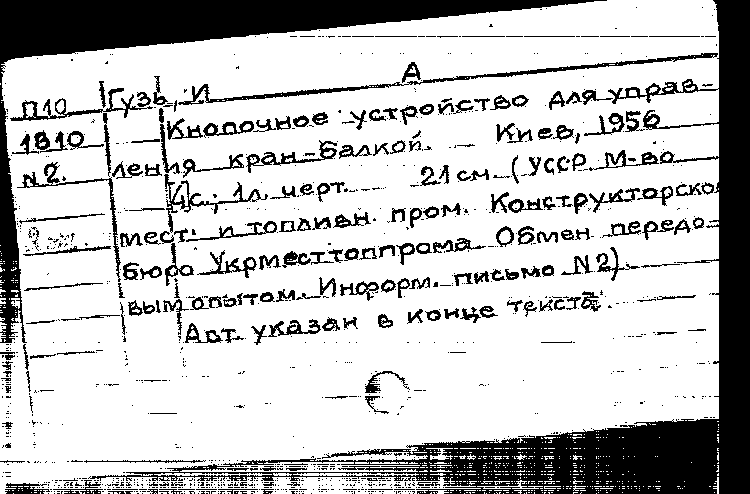 А
П10 Гузь, И
1810 Кнопочное устройство для управ-
N2. ления кран-балкой. — Киев, 1956
4с.; 1л. черт. 21см. (УССР. М-во
мест. и топливн. пром. Конструкторско
бюро Укрместтоппрома. Обмен передо-
вым опытом. Информ. письмо N2).
Авт. указан в конце текста.